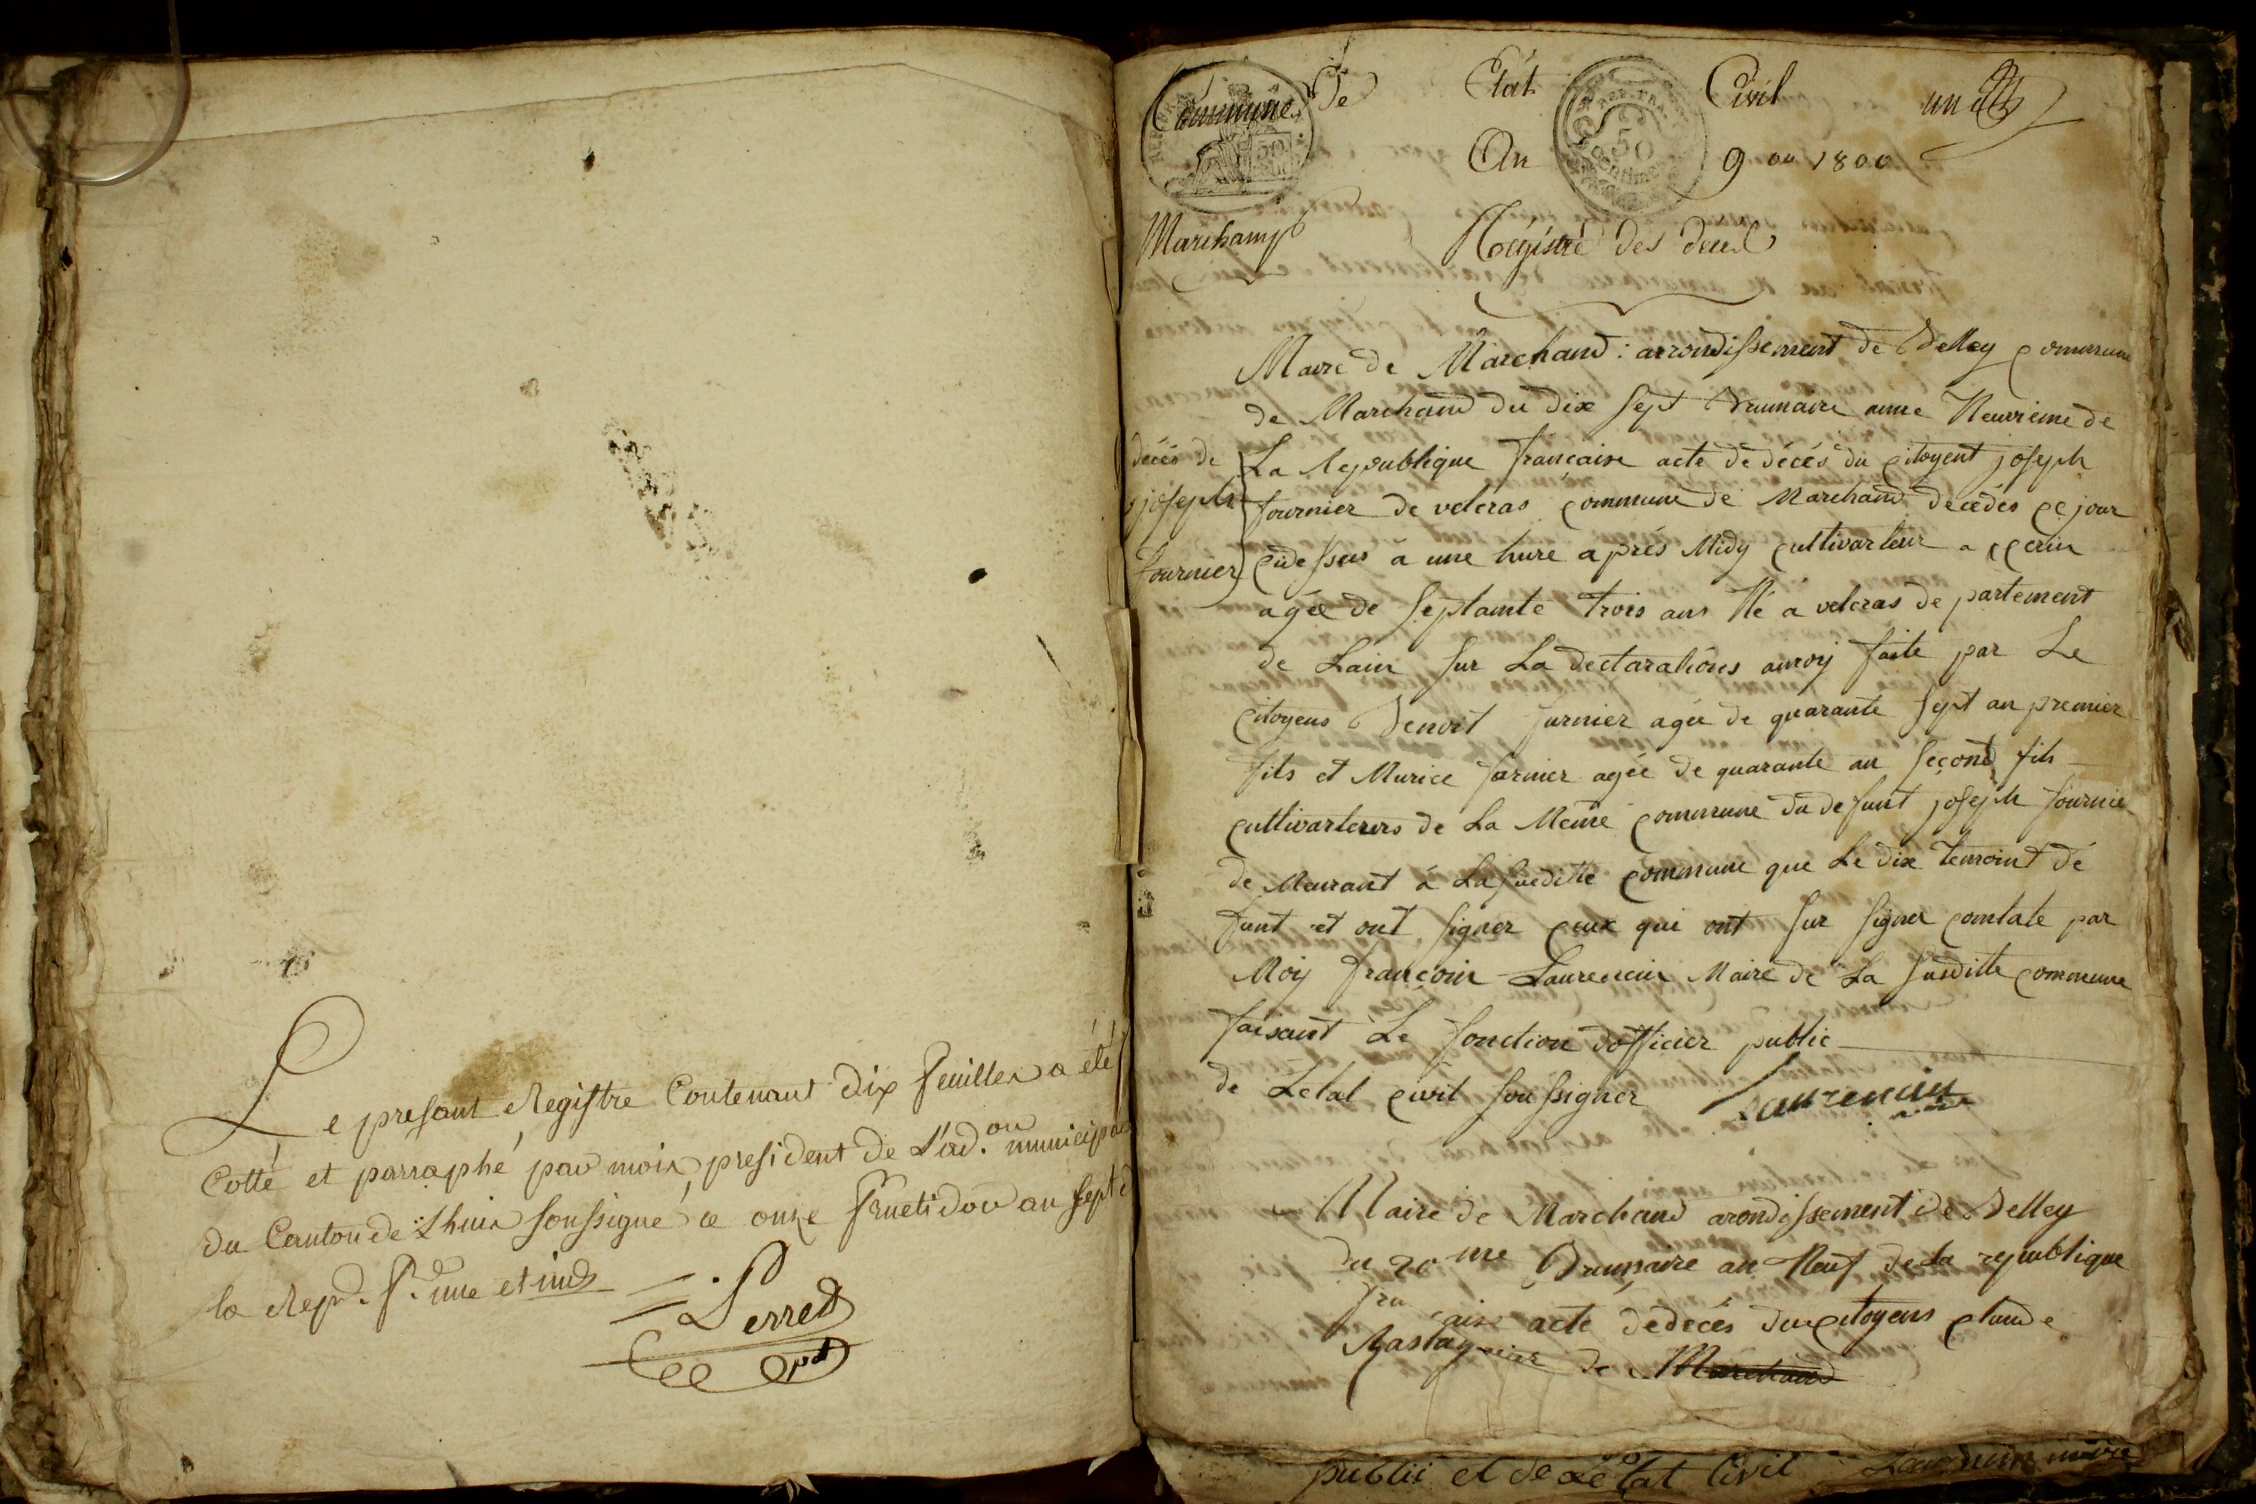 Le presant Registre Contenant dix feuilles a été
Cotté et parraphé par moi president de L'ad.on municipale
du Canton de Lhuis soussigné ce onze fructidor an sept de
la Rep. f. une et ind.
Perret
pdt
Commune de Etat Civil un
REP. FRA. 50 centimes
An 9 ou 1800
Marchamp Régistre des deces
Maire de Marchand : arrondissement de Belley commune
de Marchand du dix sept Brumaire anne Neuvieme de
décés de La Republique francaise acte de décés du citoyent joseph
joseph fournier de veleras commune de Marchand decédés ce jour
fournier cidessus à une hure aprés Midy cultivarteur a
agée de septante trois ans Né a veleras de partement
de Lain sur La declarations amoy faite par Le
citoyens Benoit furnier agée de quarante sept an premier
fils et Murice farnier agée de quarante an second fils
cultivarteurs de La Meme commune du defunt joseph fournie
de Meurant à La sueditte commune que Le dix temoint dé
funt et ont signer ceux qui ont sur signer comtate par
Moy françois Laurencin Maire de La susditte commune
faisant Le fonction dofficier public
de Letat civil soussigner Laurencin
maire
Maire de Marchand arondissement de Belley
du 20me Brumaire an Neuf de la republique
francaise acte dedécés du citoyens claude
Rastagnier de Marchand
public et de Letat Civil Laurencin maire